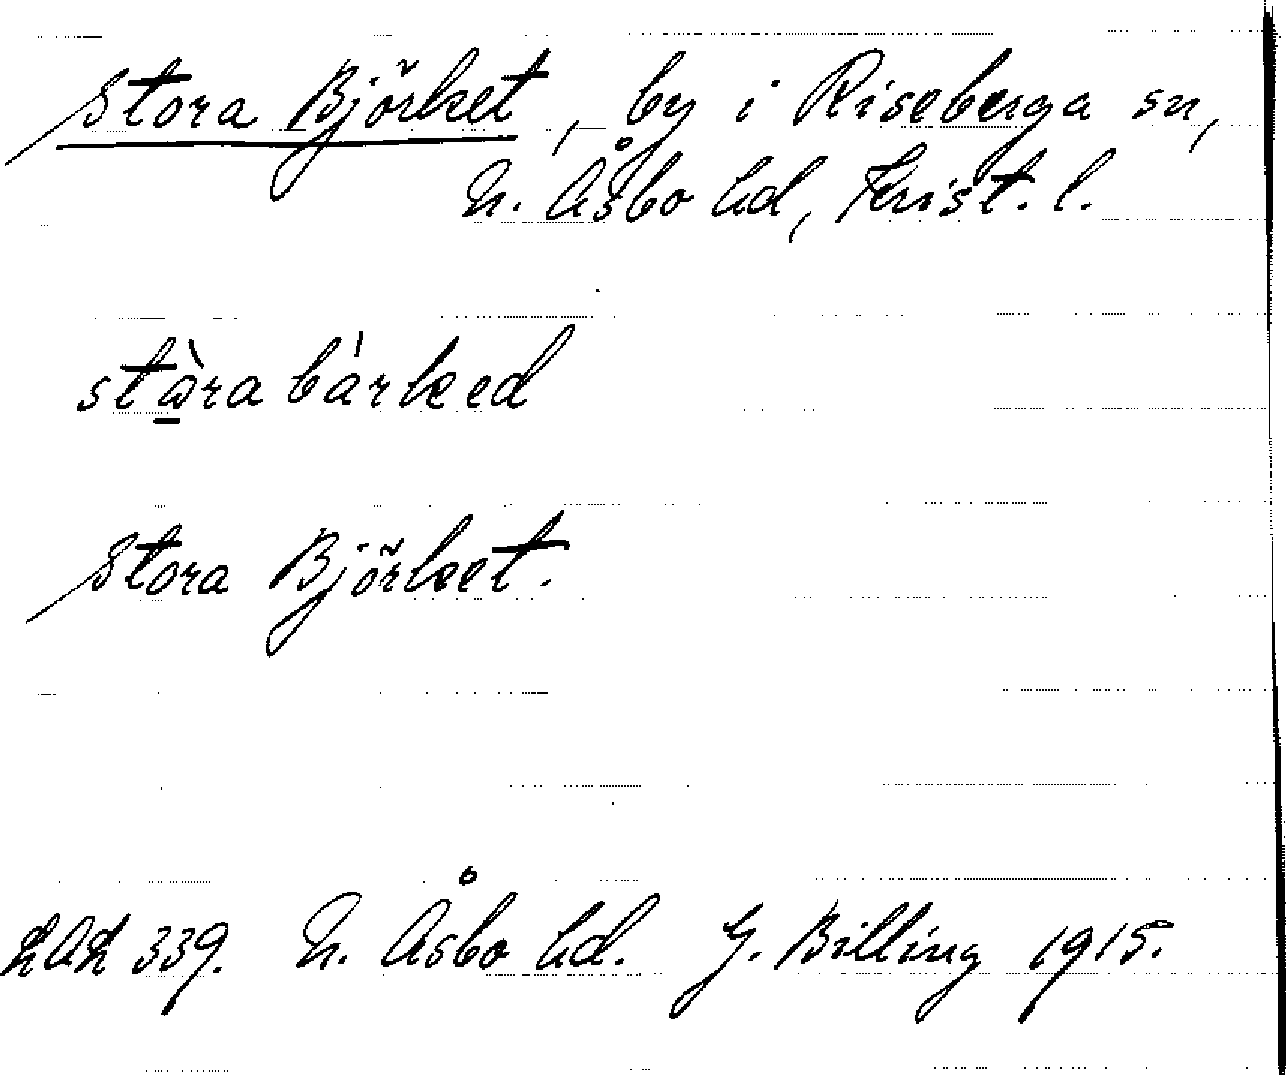 Stora Björket, by i Riseberga sn,
N. Åsbo hd, Krist. l.
stàra bárked
Stora Björket.
LAL 339. N. Åsbo hd. G. Billing 1915.